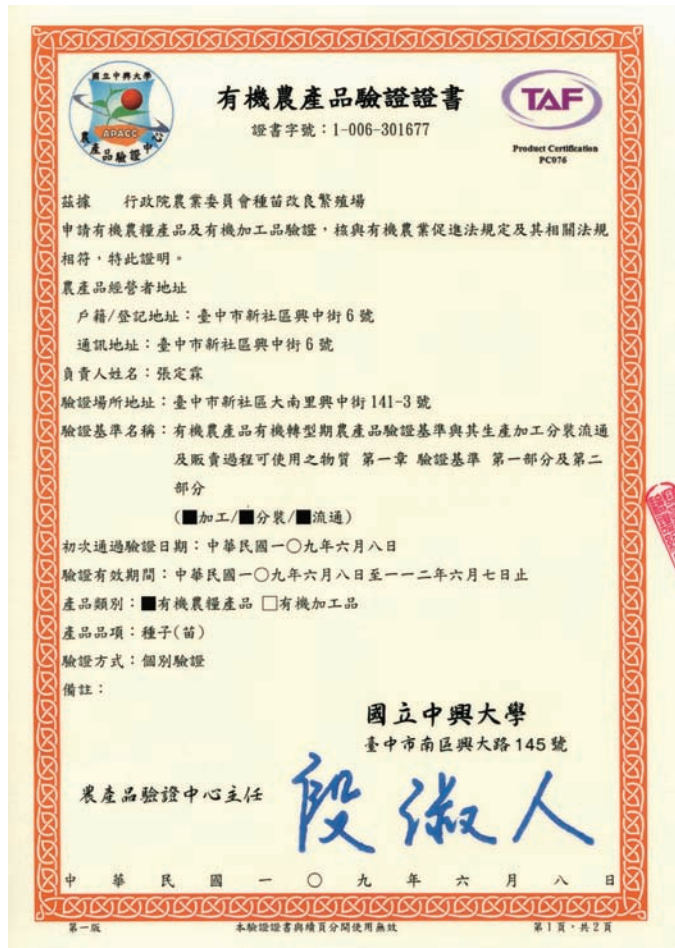 國立中興大學
APACC
農產品驗證中心
有機農產品驗證證書
證書字號：1-006-301677
TAF
Product Certification
PC076
茲據　行政院農業委員會種苗改良繁殖場
申請有機農糧產品及有機加工品驗證，核與有機農業促進法規定及其相關法規
相符，特此證明。
農產品經營者地址
戶籍/登記地址：臺中市新社區興中街6號
通訊地址：臺中市新社區興中街6號
負責人姓名：張定霖
驗證場所地址：臺中市新社區大南里興中街141-3號
驗證基準名稱：有機農產品有機轉型期農產品驗證基準與其生產加工分裝流通
及販賣過程可使用之物質 第一章 驗證基準 第一部分及第二
部分
(■加工/■分裝/■流通)
初次通過驗證日期：中華民國一〇九年六月八日
驗證有效期間：中華民國一〇九年六月八日至一一二年六月七日止
產品類別：■有機農糧產品 □有機加工品
產品品項：種子(苗)
驗證方式：個別驗證
備註：
國立中興大學
臺中市南區興大路145號
農產品驗證中心主任 段淑人
中華民國一〇九年六月八日
第一版 本驗證證書與續頁分開使用無效 第1頁，共2頁